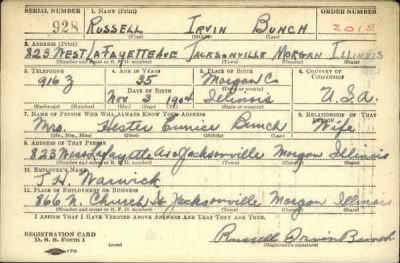 SERIAL NUMBER 1. NAME (Print) ORDER NUMBER
928 RUSSELL IRVIN BUNCH 2015
(First) (Middle) (Last)
2. ADDRESS (Print)
823 WEST LAFAYETTE AVE JACKSONVILLE MORGAN ILLINOIS
(Number and street or R. F. D. number) (Town) (County) (State)
3. TELEPHONE 4. AGE IN YEARS 5. PLACE OF BIRTH 6. COUNTRY OF CITIZENSHIP
916 Z 35 Morgan Co
DATE OF BIRTH (Town or county)
Nov 3 1904 Illinois U.S.A.
(Exchange) (Number) (Mo.) (Day) (Yr.) (State or country)
7. NAME OF PERSON WHO WILL ALWAYS KNOW YOUR ADDRESS 8. RELATIONSHIP OF THAT PERSON
Mrs. Hester Eunice Bunch Wife
(Mr., Mrs., Miss) (First) (Middle) (Last)
9. ADDRESS OF THAT PERSON
823 West Lafayette Ave Jacksonville Morgan Illinois
(Number and street or R. F. D. number) (Town) (County) (State)
10. EMPLOYER'S NAME
J. H. Warwick
11. PLACE OF EMPLOYMENT OR BUSINESS
866 N. Church St Jacksonville Morgan Illinois
(Number and street or R. F. D. number) (Town) (County) (State)
I AFFIRM THAT I HAVE VERIFIED ABOVE ANSWERS AND THAT THEY ARE TRUE.
REGISTRATION CARD
D. S. S. Form 1 Russell Irvin Bunch
(Registrant's signature)